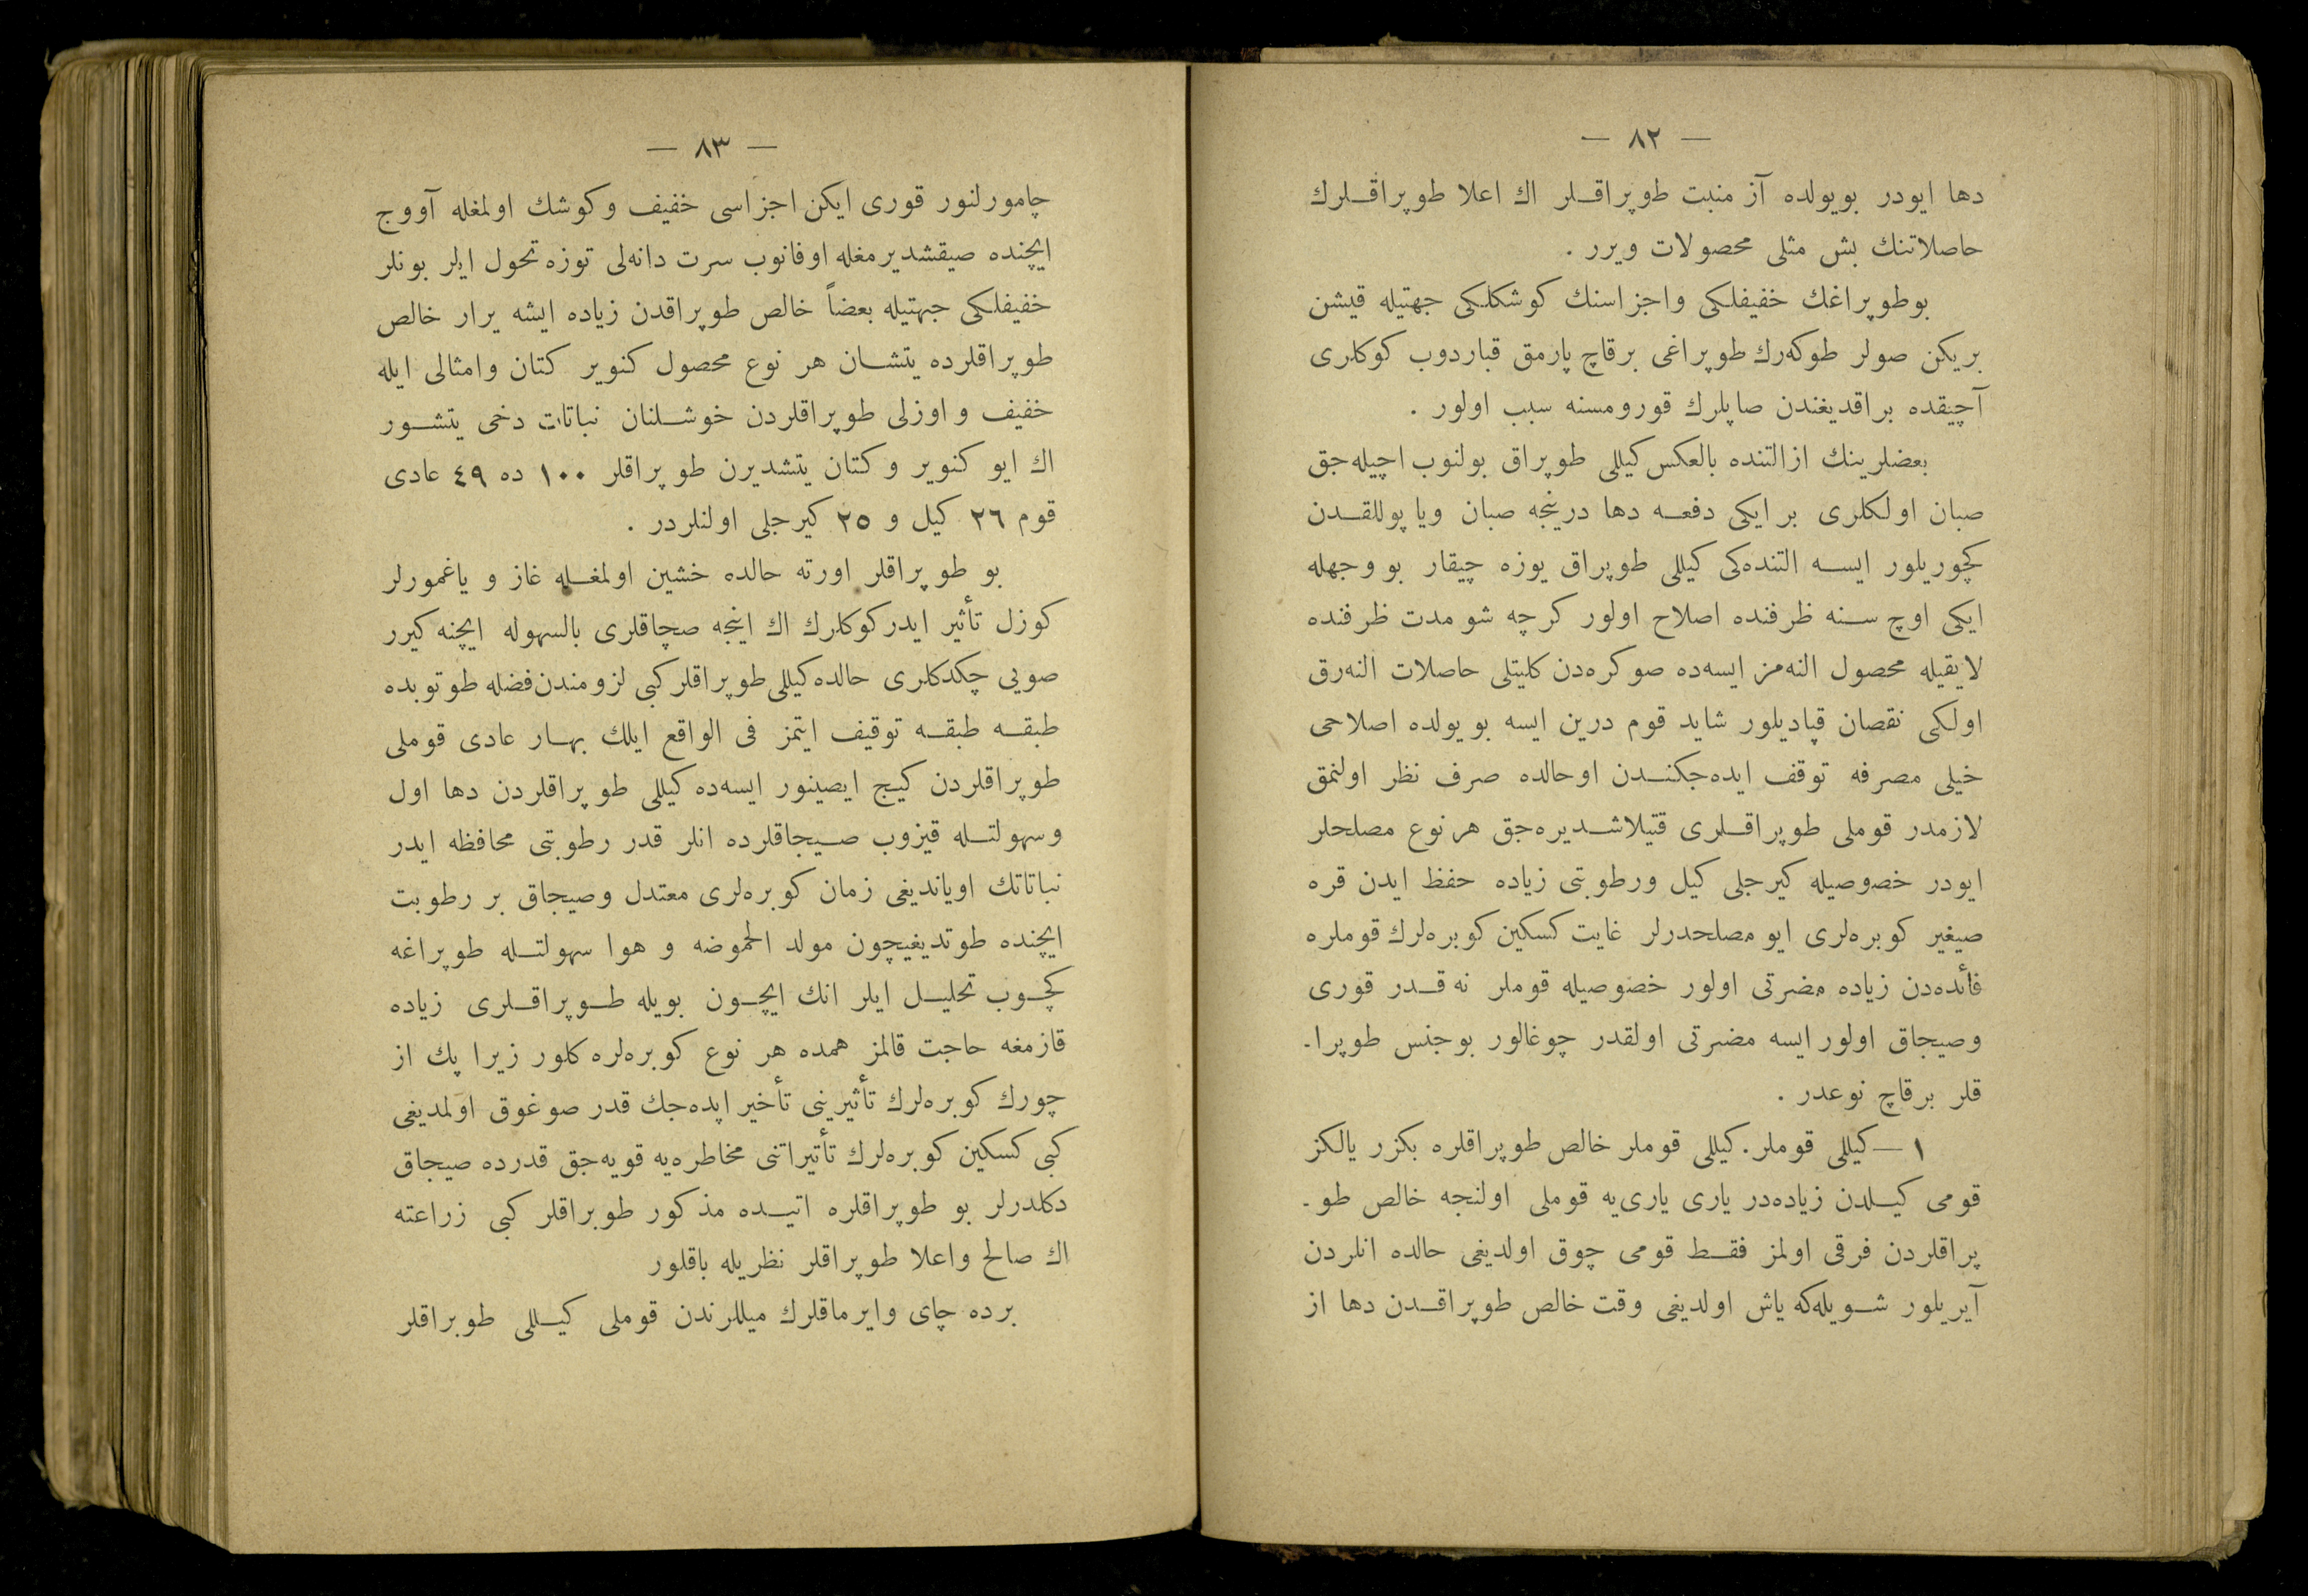 — ٨٢ —
دها ایودر بویولده آز منبت طوپراقلر اك اعلا طوپراقلرك
حاصلاتنك بش مثلی محصولات ویرر .
بوطوپراغك خفیفلكی واجزاسنك كوشكلكی جهتیله قیشن
بریكن صولر طوكه‌رك طوپراغی برقاچ پارمق قباردوب كوكلری
آچیقده براقدیغندن صاپلرك قورومسنه سبب اولور .
بعضلرینك ازالتنده بالعكس كیللی طوپراق بولنوب اچیله‌جق
صبان اولكلری برایكی دفعه دها درینجه صبان ویا پوللقدن
كچوریلور ایسه التنده‌كی كیللی طوپراق یوزه چیقار بو وجهله
ایكی اوچ سنه ظرفنده اصلاح اولور كرچه شو مدت ظرفنده
لایقیله محصول النه‌مز ایسه‌ده صوكره‌دن كلیتلی حاصلات النه‌رق
اولكی نقصان قپادیلور شاید قوم درین ایسه بو یولده اصلاحی
خیلی مصرفه توقف ایده‌جكندن اوحالده صرف نظر اولنمق
لازمدر قوملی طوپراقلری قتیلاشدیره‌جق هرنوع مصلحلر
ایودر خصوصیله كیرجلی كیل ورطوبتی زیاده حفظ ایدن قره
صیغیر كوبره‌لری ایو مصلحدرلر غایت كسكین كوبره‌لرك قوملره
فائده‌دن زیاده مضرتی اولور خصوصیله قوملر نه قدر قوری
وصیجاق اولور ایسه مضرتی اولقدر چوغالور بوجنس طوپرا-
قلر برقاچ نوعدر .
١ — كیللی قوملر . كیللی قوملر خالص طوپراقلره بكزر یالكز
قومی كیلدن زیاده‌در یاری یاری‌یه قوملی اولنجه خالص طو-
پراقلردن فرقی اولمز فقط قومی چوق اولدیغی حالده انلردن
آیریلور شویله‌كه یاش اولدیغی وقت خالص طوپراقدن دها از
— ٨٣ —
چامورلنور قوری ایكن اجزاسی خفیف وكوشك اولمغله آووج
ایچنده صیقشدیرمغله اوفانوب سرت دانه‌لی توزه تحول ایلر بونلر
خفیفلكی جهتیله بعضاً خالص طوپراقدن زیاده ایشه یرار خالص
طوپراقلرده یتشان هر نوع محصول كنویر كتان وامثالی ایله
خفیف و اوزلی طوپراقلردن خوشلنان نباتات دخی یتشور
اك ایو كنویر و كتان یتشدیرن طوپراقلر ١٠٠ ده ٤٩ عادی
قوم ٢٦ كیل و ٢٥ كیرجلی اولنلردر .
بو طوپراقلر اورته حالده خشین اولمغله غاز و یاغمورلر
كوزل تأثیر ایدر كوكلرك اك اینجه صچاقلری بالسهوله ایچنه كیرر
صویی چكدكلری حالده كیللی طوپراقلر كبی لزومندن فضله طوتوبده
طبقه طبقه توقیف ایتمز فی الواقع ایلك بهار عادی قوملی
طوپراقلردن كیج ایصینور ایسه‌ده كیللی طوپراقلردن دها اول
وسهولتله قیزوب صیجاقلرده انلر قدر رطوبتی محافظه ایدر
نباتاتك اویاندیغی زمان كوبره‌لری معتدل وصیجاق بر رطوبت
ایچنده طوتدیغیچون مولد الحموضه و هوا سهولتله طوپراغه
كچوب تحلیل ایلر انك ایچون بویله طوپراقلری زیاده
قازمغه حاجت قالمز همده هر نوع كوبره‌لره كلور زیرا پك از
چورك كوبره‌لرك تأثیرینی تأخیر ایده‌جك قدر صوغوق اولمدیغی
كبی كسكین كوبره‌لرك تأثیراتنی مخاطره‌یه قویه‌جق قدرده صیجاق
دكلدرلر بو طوپراقلره اتیده مذكور طوبراقلر كبی زراعته
اك صالح واعلا طوپراقلر نظریله باقلور
برده چای وایرماقلرك میللرندن قوملی كیللی طوبراقلر